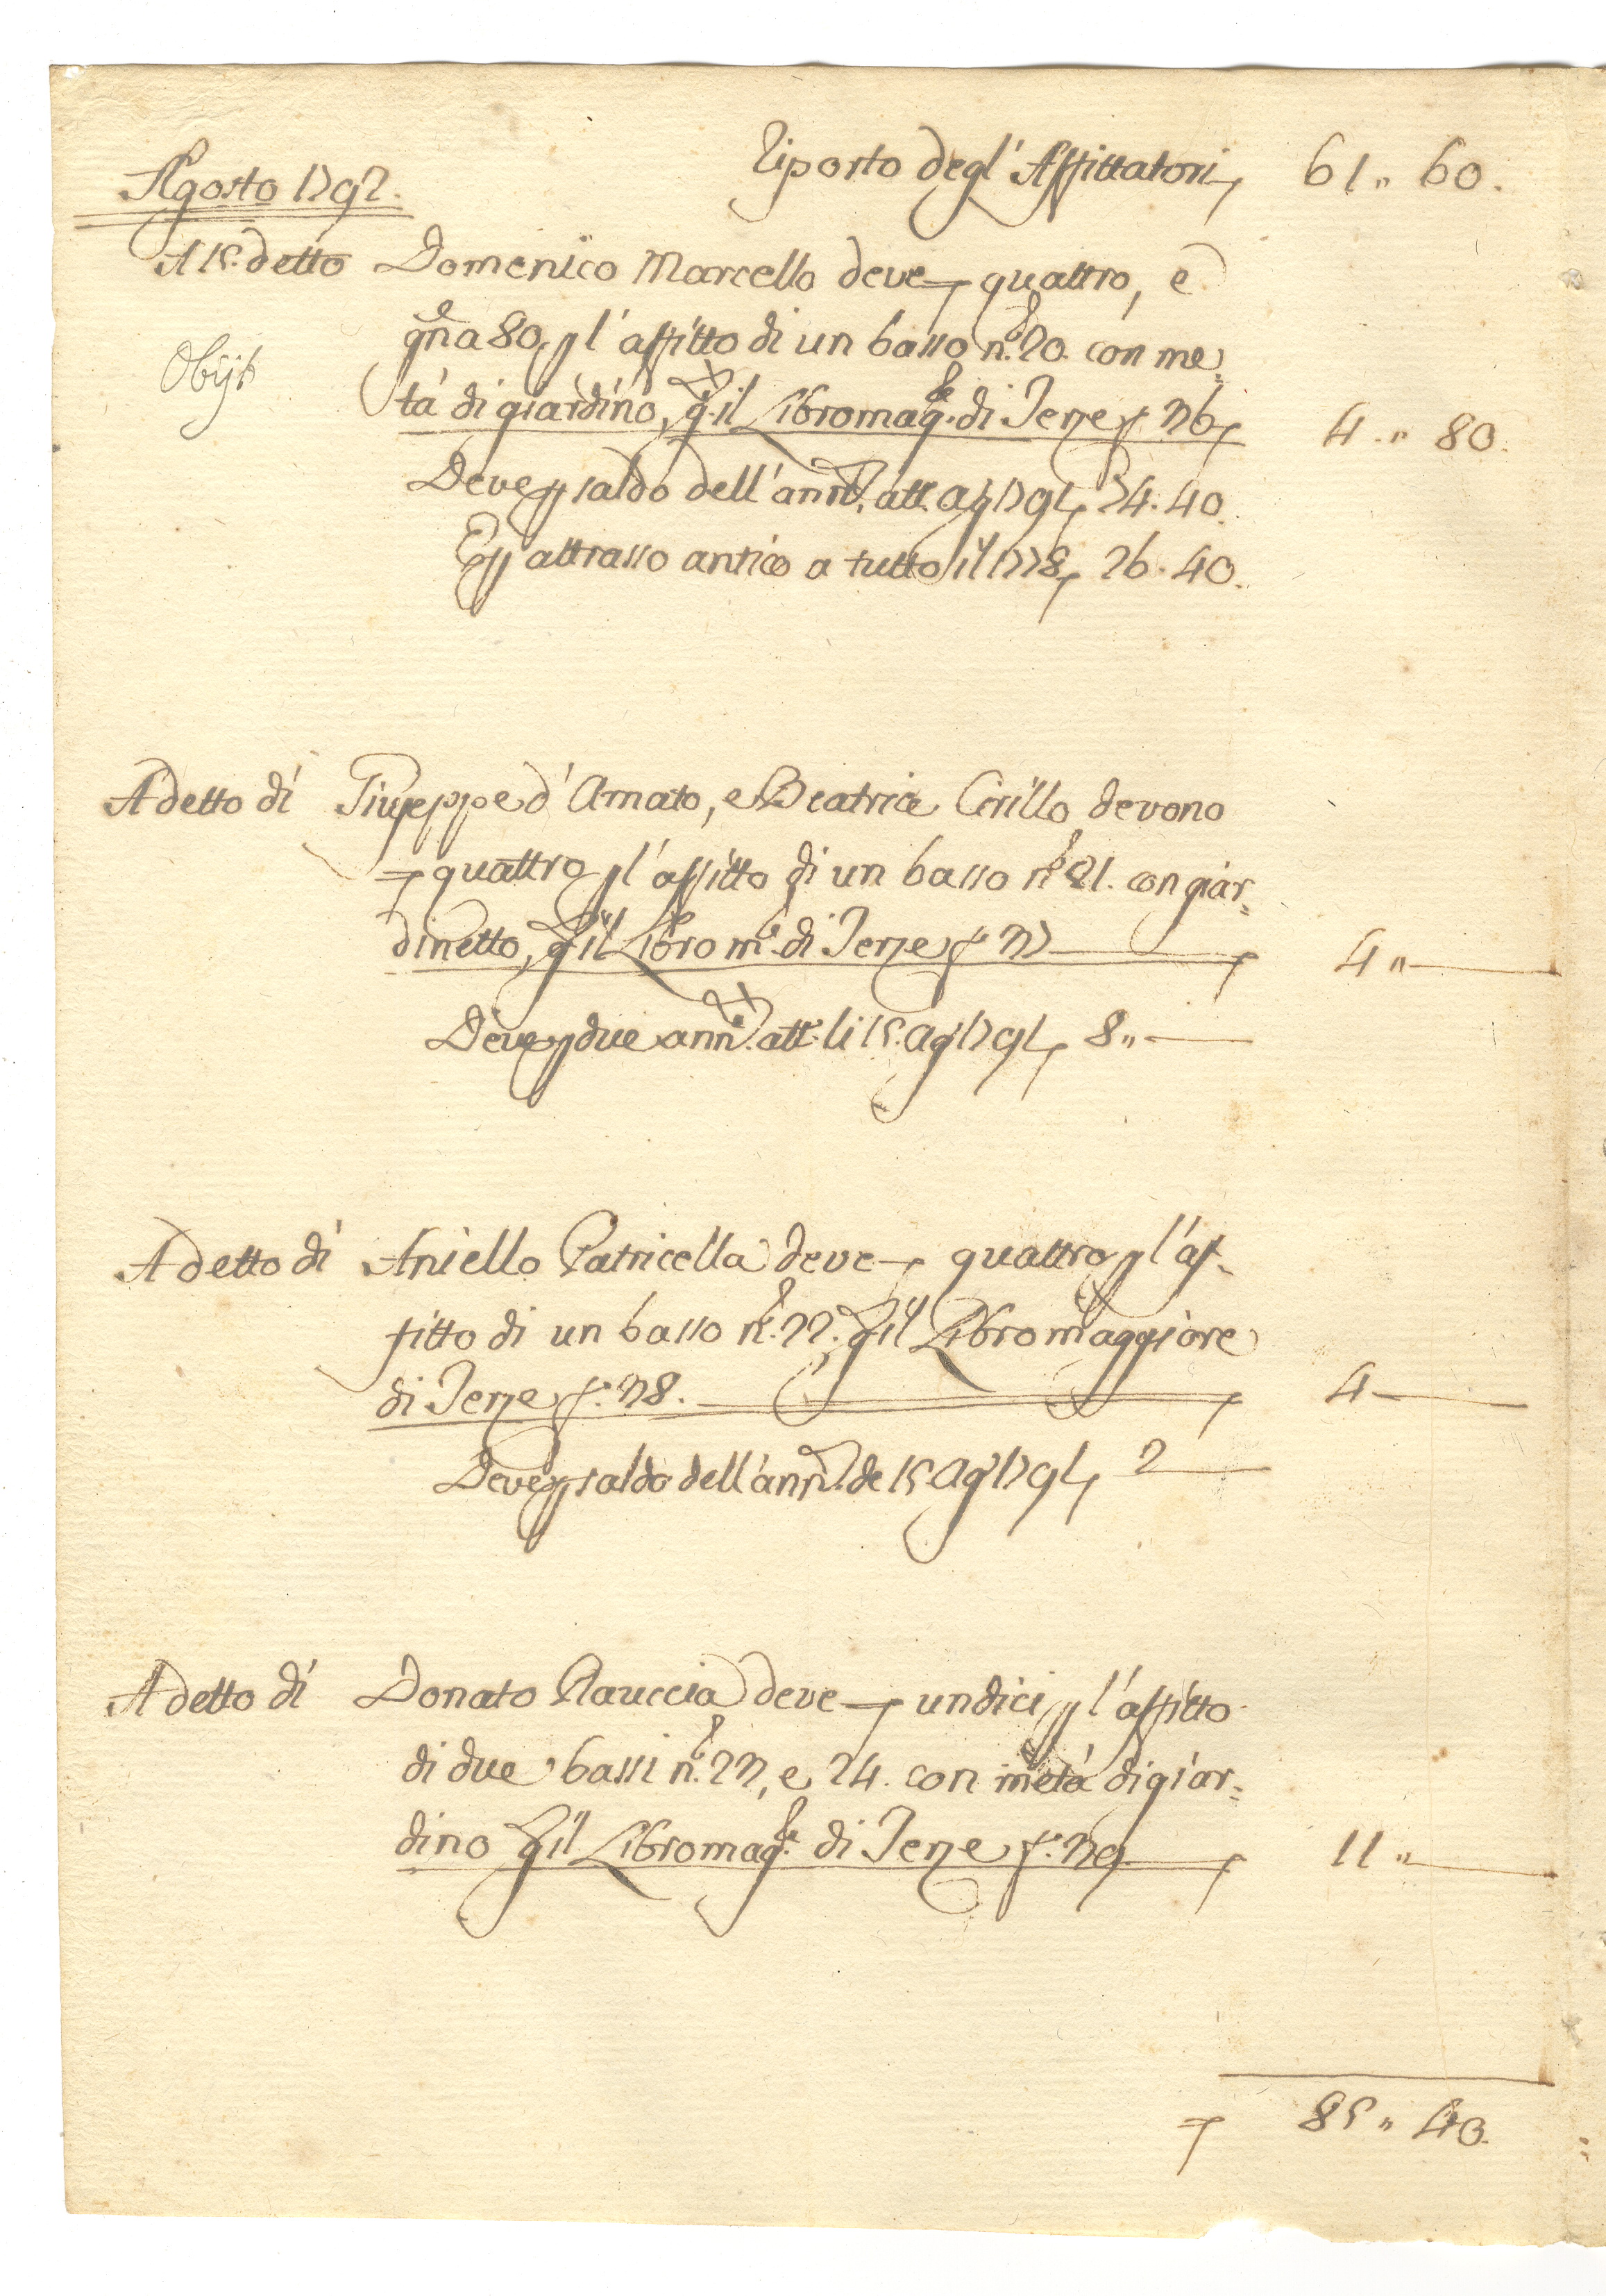 Riporto degl'Affittatori 61 " 60.
Agosto 1792.
A 15. detto Domenico Marcello deve quattro, e
Obijt
gna 80 p l'affitto di un basso n.º 20. con me=
tà di giardino, p. il Libro mag.re di Terze f. 36 4 . " 80.
Deve p saldo dell'ann. att. ag. 1791 34. 40.
E p attrasso antico a tutto il 1778 26. 40.
A detto dì Giuseppe d'Amato, e Beatrice Cirillo devono
quattro p l'affitto di un basso n.º 21. con giar=
dinetto, p il Libro m.e di Terze f. 37 4 "
Deve p due ann. att. li 15. ag. 1791 8 "
A detto dì Aniello Patricella deve quattro p l'af=
fitto di un basso n.º 22. p il Libro maggiore
di Terze f. 38. 4
Deve p saldo dell'ann. de 15 Ag. 1791 2
A detto dì Donato Rauccia deve undici p l'affitto
di due bassi n.º 23, e 24. con metà di giar=
dino p il Libro mag.re di Terze f. 39. 11 "
85 " 40.